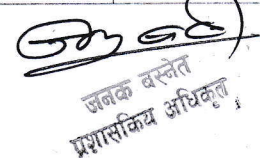 जनक वस्नेत
प्रशासकिय अधिकृत